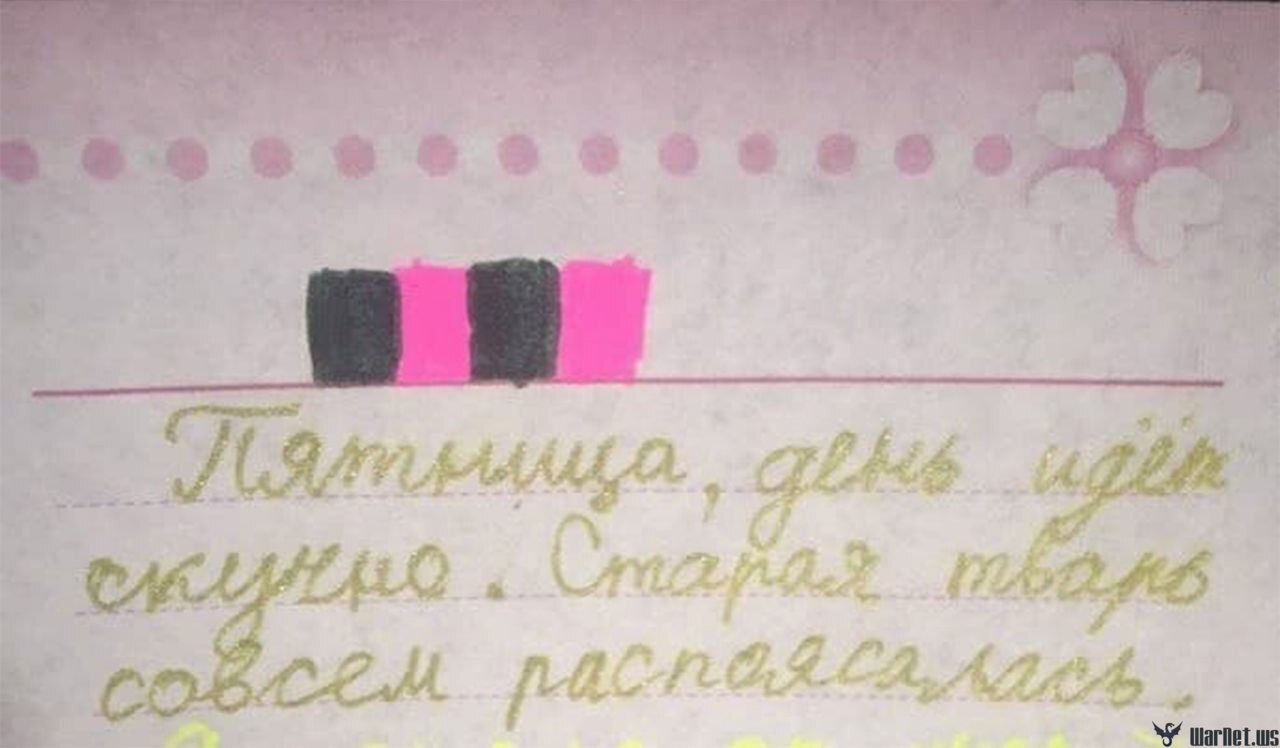 Пятница, день идёт
скучно. Старая тварь
совсем распоясалась.
WarNet.us